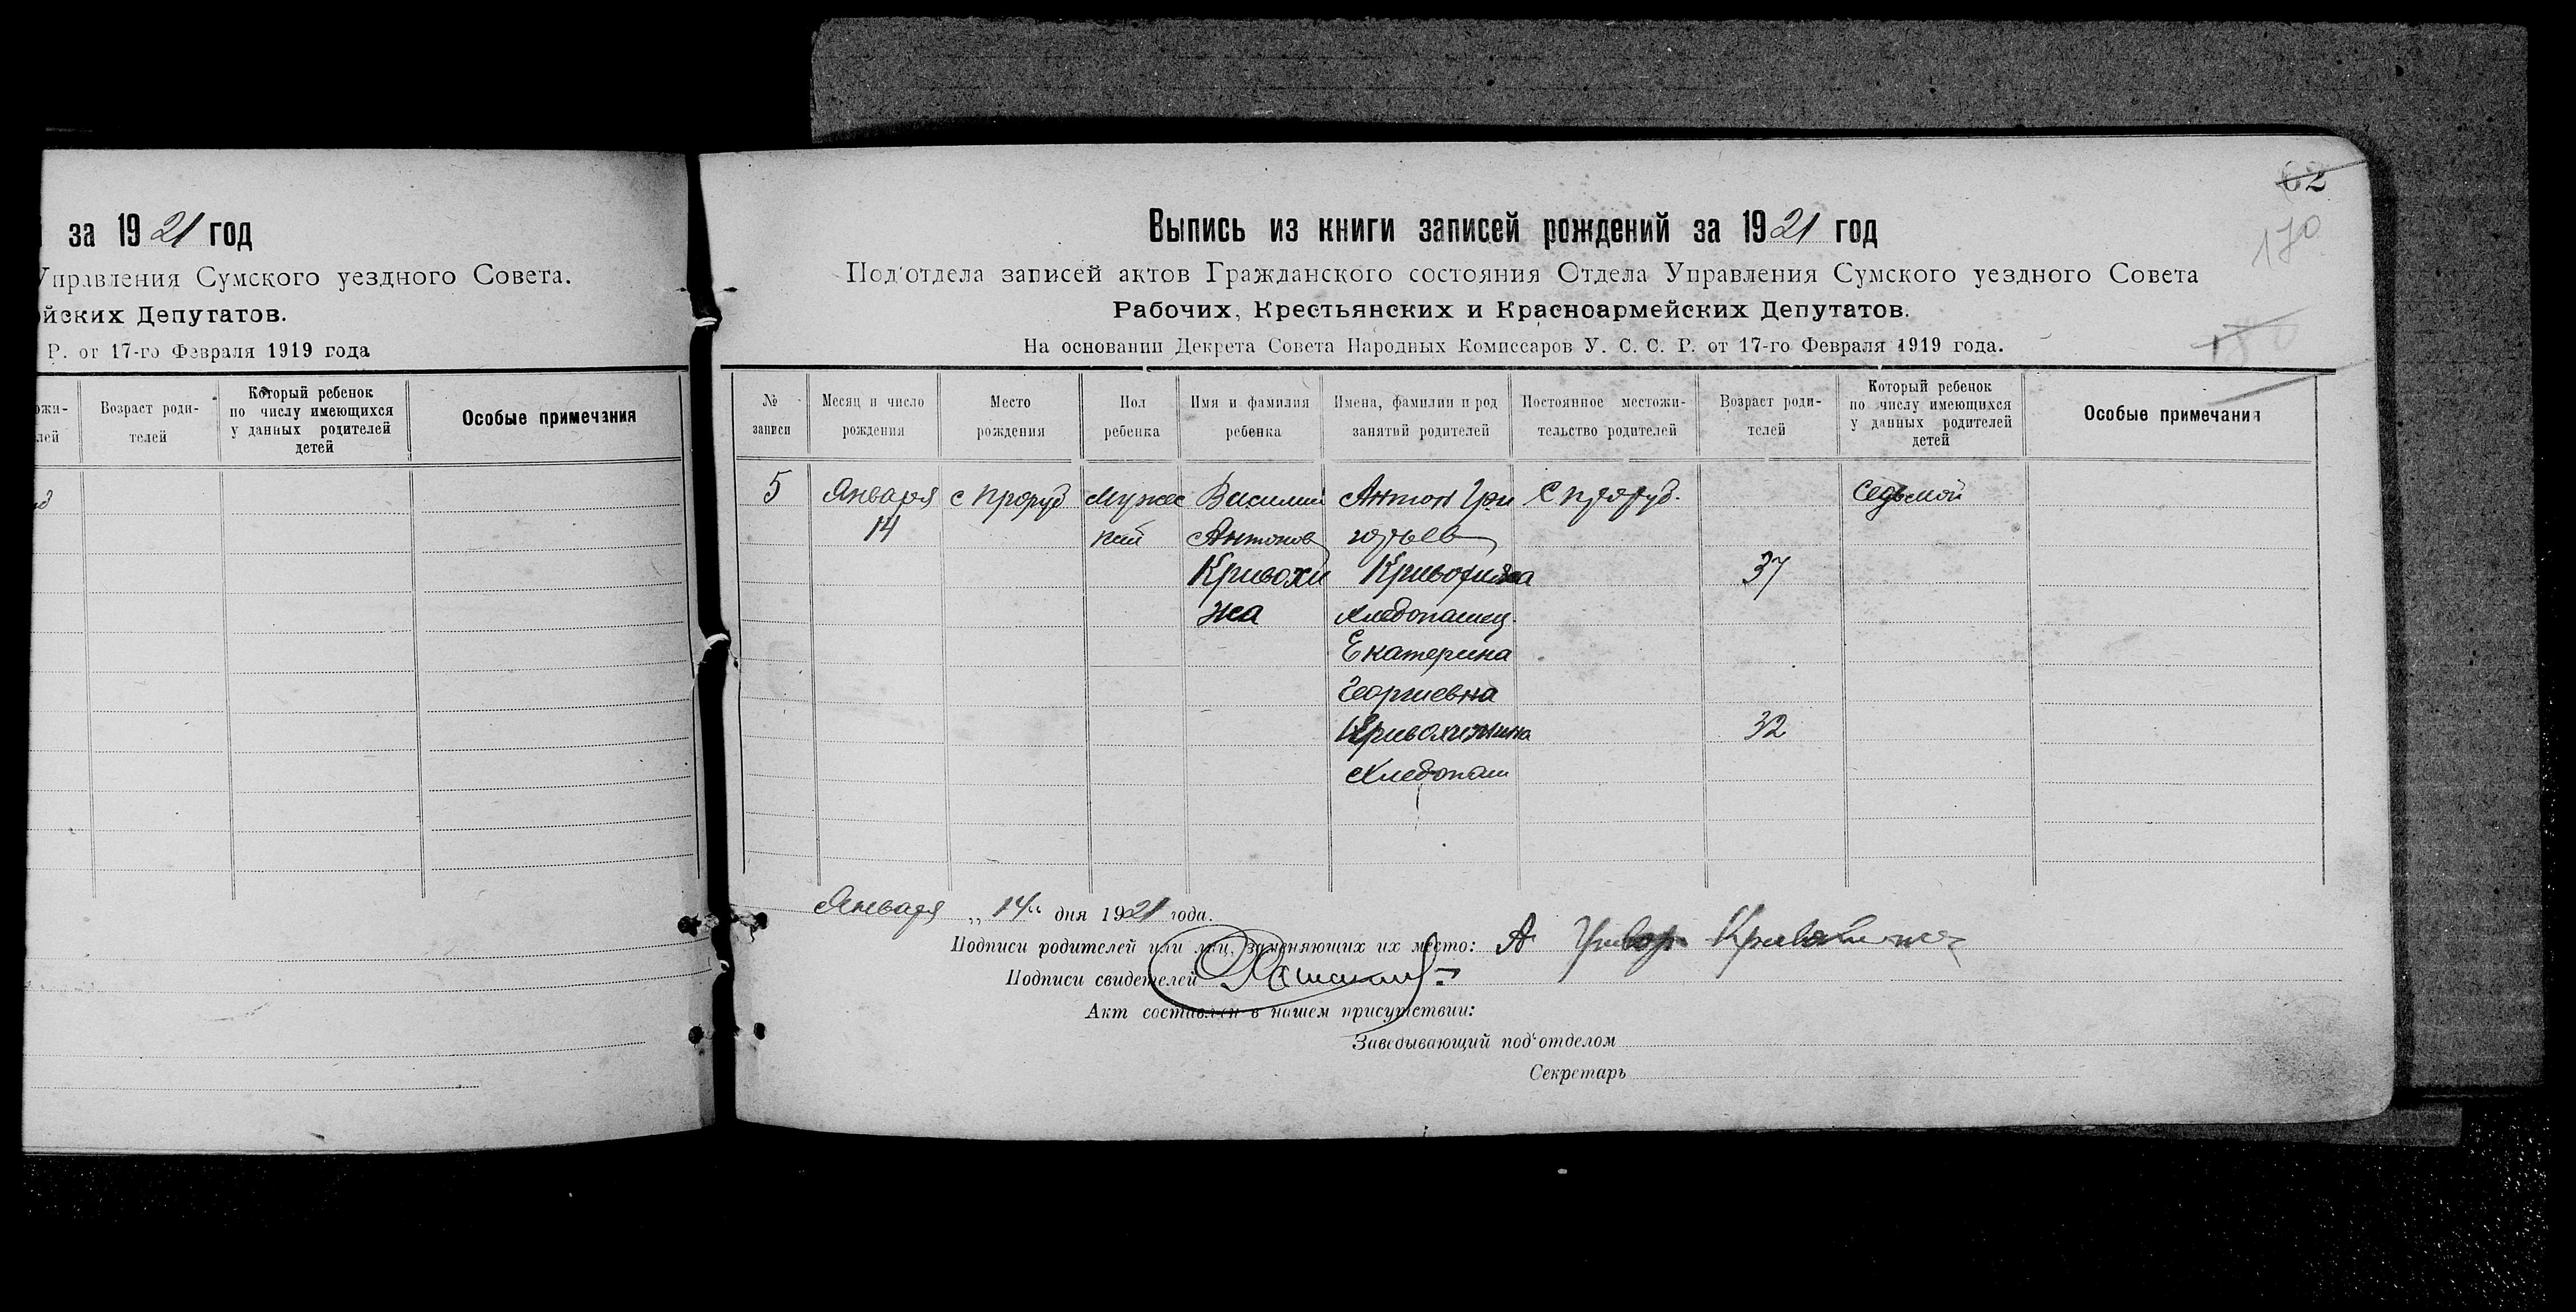 за 1921 год
Управления Сумского уездного Совета.
йских Депутатов.
Р. от 17-го Февраля 1919 года
ожи-
лей
Возраст роди-
телей
Который ребенок
по числу имеющихся
у данных родителей
детей
Особые примечания
62
170
Выпись из книги записей рождений за 1921 год
Под'отдела записей актов Гражданского состояния Отдела Управления Сумского уездного Совета
Рабочих, Крестьянских и Красноармейских Депутатов.
На основании Декрета Совета Народных Комиссаров У. С. С. Р. от 17-го Февраля 1919 года.
№
записи
Месяц и число
рождения
Место
рождения
Пол
ребенка
Имя и фамилия
ребенка
Имена, фамилии и род
занятий родителей
Постоянное местожи-
тельство родителей
Возраст роди-
телей
Который ребенок
по числу имеющихся
у данных родителей
детей
Особые примечания
5 Января с Проруб Мужес Василий Антон Гри С Проруб. седьмой
14 кий Антонов горьев
Кривохи Кривохижа 37
жа хлебопашец
Екатерина
Георгиевна
Кривохижина 32
Хлебопаш
Января „14“ дня 1921 года.
Подписи родителей или лиц, заменяющих их место: А Кривохижа
Подписи свидетелей
Акт составлен в нашем присутствии:
Заведывающий под'отделом
Секретарь